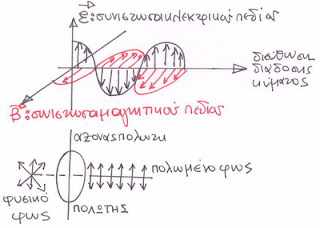 E: συνιστωσα ηλεκτρικού πεδίου
διευθυνση
διάδοσης
κύματος
B: συνιστωσα μαγνητικού πεδίου
αξονας πολωτη
πολωμένο φως
φυσικό
φως
πολωτης